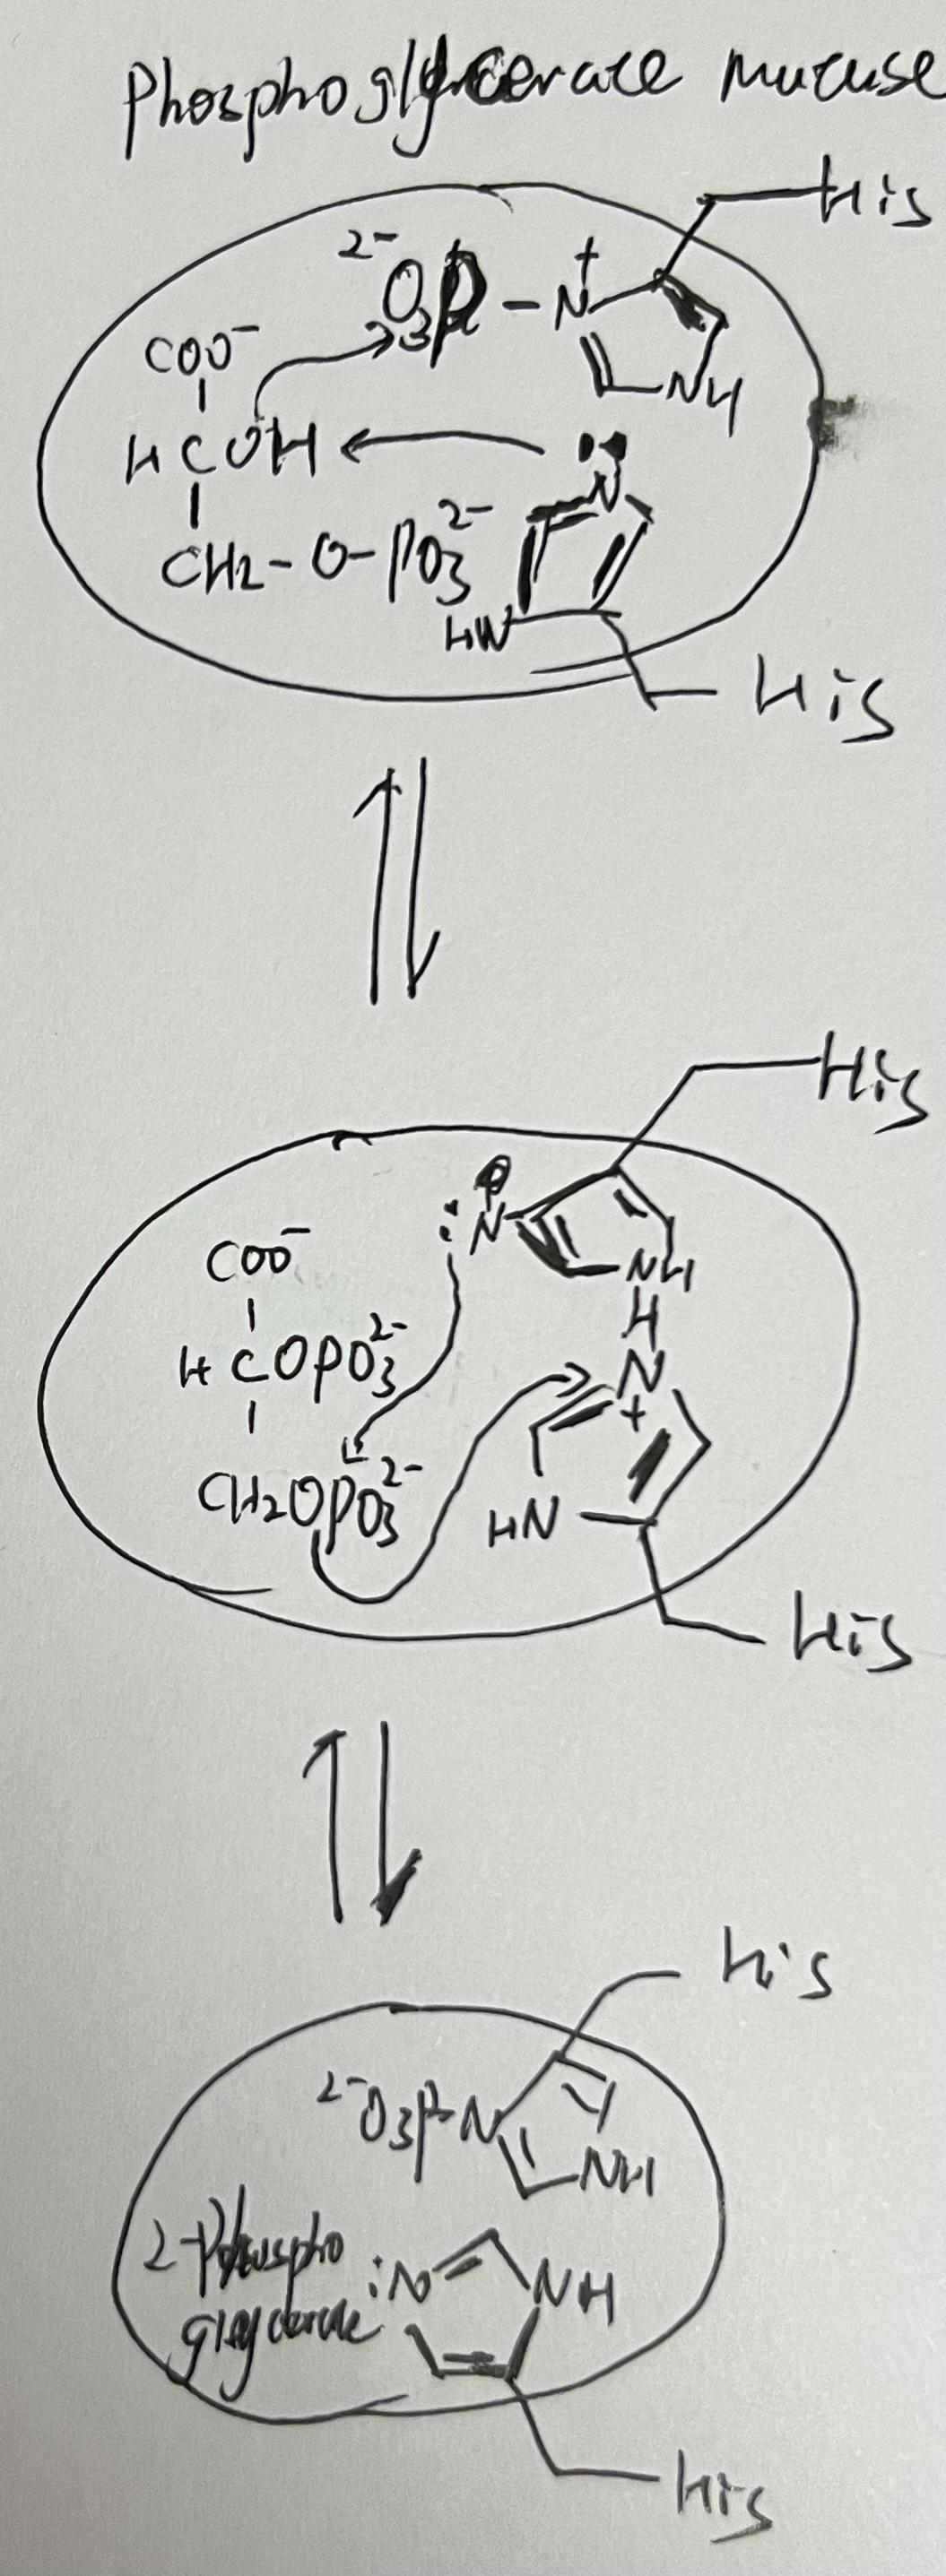 Phosphoglycerate mutase
His
2-O3P-N+
COO-
NH
HCOH
:N
CH2-O-PO3 2-
HN
His
His
:N
COO-
NH
H
HCOPO3 2-
N
+
CH2OPO3 2-
HN
His
His
2-O3P-N
NH
2-Phospho
:N
NH
glycerate
His